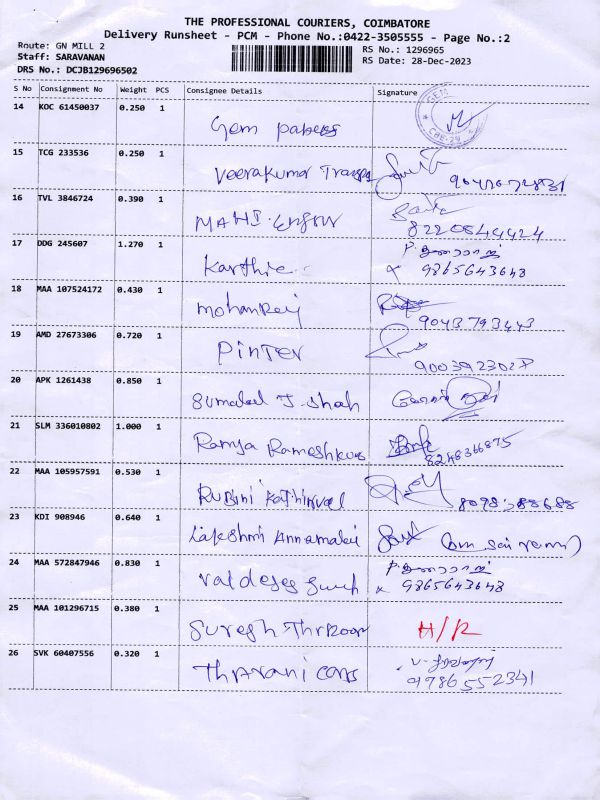 THE PROFESSIONAL COURIERS, COIMBATORE
Delivery Runsheet - PCM - Phone No.:0422-3505555 - Page No.:2
Route: GN MILL 2
RS No.: 1296965
Staff: SARAVANAN
RS Date: 28-Dec-2023
DRS No.: DCJB129696502
S No Consignment No Weight PCS Consignee Details Signature
14 KOC 61450037 0.250 1 Gem papers
GEM
CBE-29
15 TCG 233536 0.250 1 Veerakumar
16 TVL 3846724 0.390 1 MAHI
8220844424
17 DDG 245607 1.270 1 Karthic
9865643648
18 MAA 107524172 0.430 1 Mohanraj
9043793443
19 AMD 27673306 0.720 1 PINTER
20 APK 1261438 0.850 1 J. Shah
21 SLM 336010802 1.000 1 Ramya
8248366875
22 MAA 105957591 0.530 1 Rubini
23 KDI 908946 0.640 1 Lakshmi Annamalai
24 MAA 572847946 0.830 1
9865643648
25 MAA 101296715 0.380 1 Suresh
H/R
26 SVK 60407556 0.320 1 Tharani
9786552341